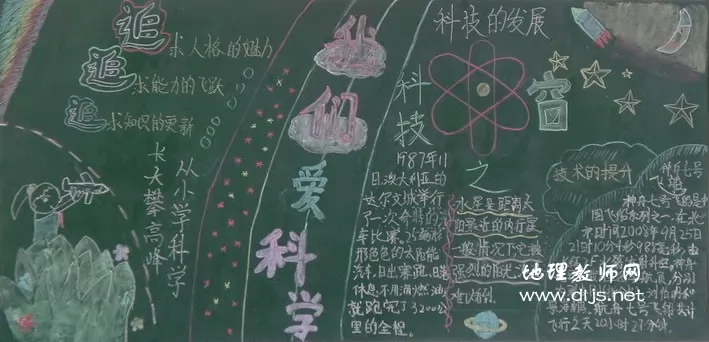 追求人格的魅力
追求能力的飞跃
追求知识的更新
从小学科学
长大攀高峰
我们爱科学
科技的发展
科技之窗
1987年11
日,澳大利亚的
达尔文城举行
了一次奇特的汽
车比赛。25辆形
形色色的太阳能
汽车,日出赛跑,日落
休息,不用消燃油,
就跑完了3200公
里的全程。
水星是距离太
阳最近的内行星
一般情况下它被
强烈的阳光
难以看到
技术的提升
神舟七号
飞船
神舟七号飞船是中
国飞船系列之一,在北
京时间2008年9月25日
21时10分4秒988毫秒,由
神舟七号飞船共计
飞行2天20小时27分钟。
地理教师网
www.dljs.net